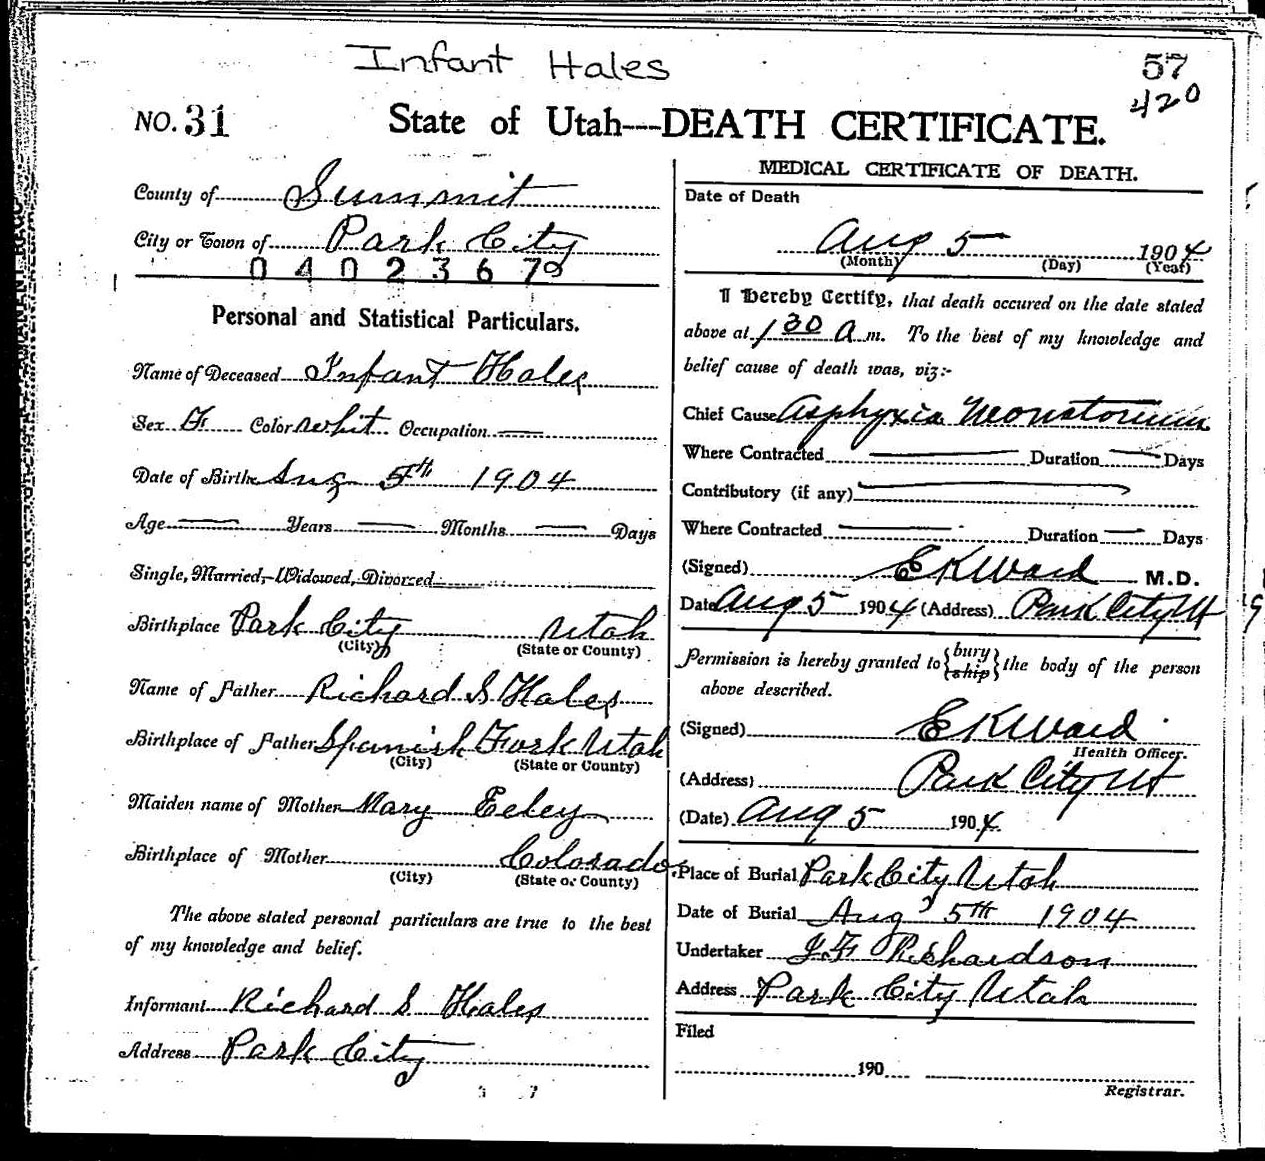 Infant Hales
57
420
NO. 31 State of Utah---DEATH CERTIFICATE.
County of Summit
City or Town of Park City
0 4 0 2 3 6 7
Personal and Statistical Particulars.
Name of Deceased Infant Hales
Sex F Color whit Occupation —
Date of Birth Aug 5th 1904
Age — Years — Months — Days
Single, Married, Widowed, Divorced
Birthplace Park City Utah
(City) (State or County)
Name of Father Richard S Hales
Birthplace of Father Spanish Fork Utah
(City) (State or County)
Maiden name of Mother Mary Eeley
Birthplace of Mother Colorado
(City) (State or County)
The above stated personal particulars are true to the best
of my knowledge and belief.
Informant Richard S Hales
Address Park City
MEDICAL CERTIFICATE OF DEATH.
Date of Death
Aug 5 1904
(Month) (Day) (Year)
I Hereby Certify, that death occured on the date stated
above at 1 30 A m. To the best of my knowledge and
belief cause of death was, viz:-
Chief Cause Asphyxia Neonatorium
Where Contracted — Duration — Days
Contributory (if any) —
Where Contracted — Duration — Days
(Signed) E K Ward M.D.
Date Aug 5 1904 (Address) Park City Ut
Permission is hereby granted to {bury ship} the body of the person
above described.
(Signed) E K Ward
Health Officer.
(Address) Park City Ut
(Date) Aug 5 1904
Place of Burial Park City Utah
Date of Burial Aug 5th 1904
Undertaker J.F Richardson
Address Park City Utah
Filed
190
Registrar.